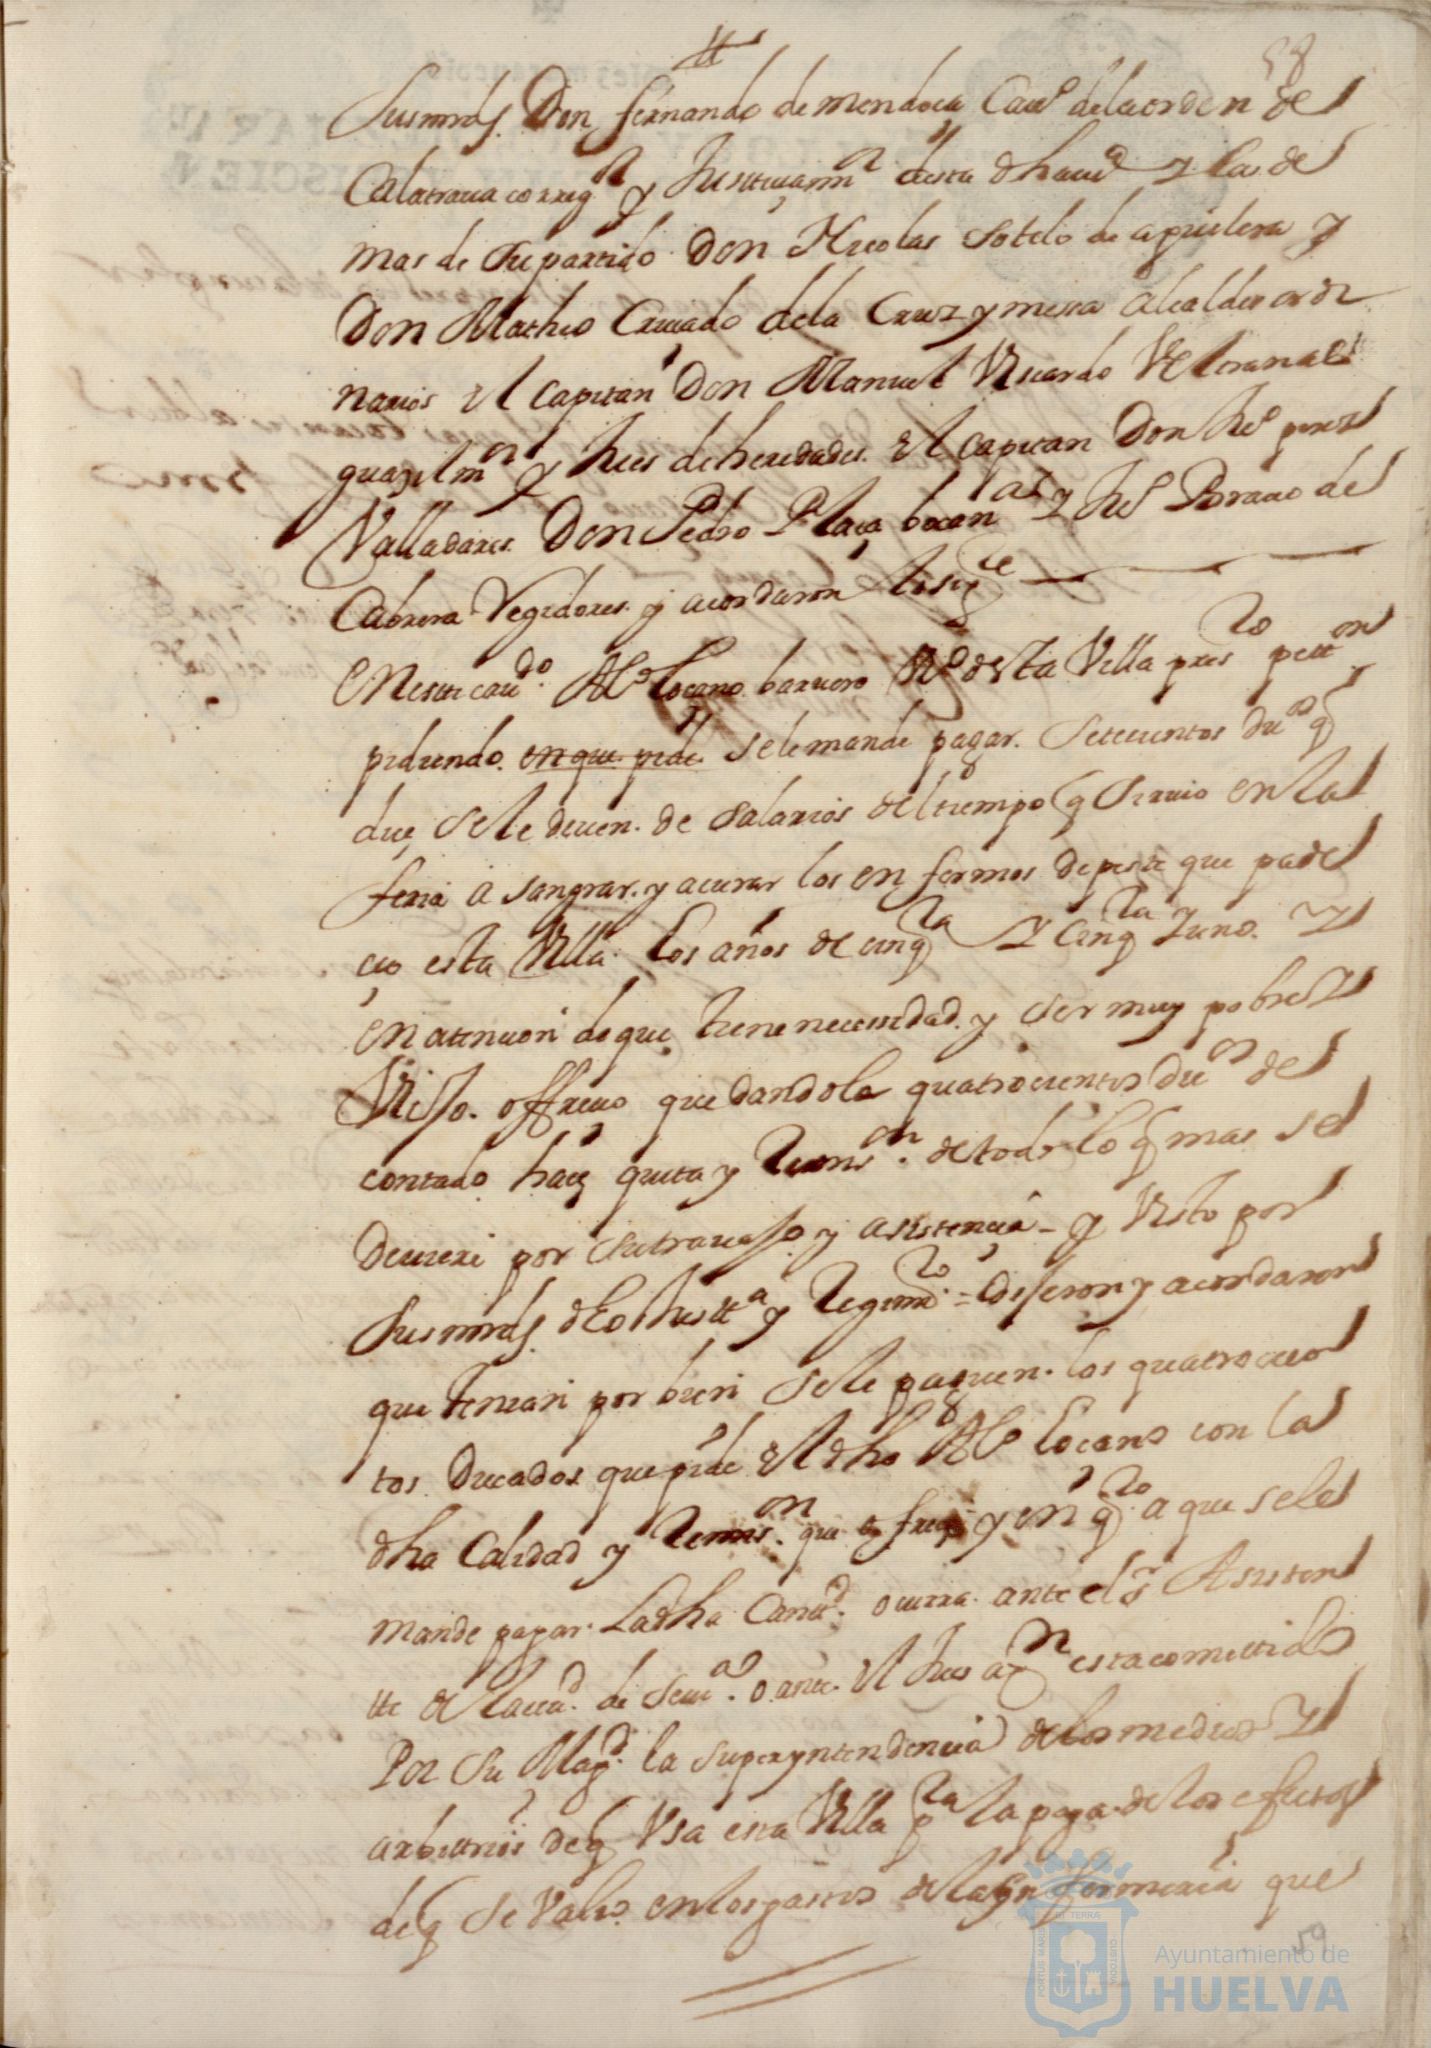 58
Susmrds. Don fernando de mendoça Cauo de la orden de
Calatraua correg.or y Justiçia mor desta dha uia y las de
mas de su partido Don Nicolas sotelo de aguilera y
Don Matheo Criuado de la Cruz y mesa alcaldes ordi
narios el capitan Don Manuel Viscardo Veltran al
guazil mor y Jues de heredades. el capitan Don Jho perez
Valladares. Don Pedro Plaça bocanas y Jho Brauo de
Cabrera Regidores. y acordaron lo sigte
en este caudo. Alo Loçano baruero vo desta Villa presto petton
pidiendo. en que pide se le mande pagar. setecientos duos q
diçe se le deuen. de salarios del tiempo q siruio en la
feria a sangrar. y a curar los enfermos de peste que pade
çio esta Villa los años de cinqta y cinqta y uno. y
en atençion de que tiene necessidad. y ser muy pobre y
Viejo. offreçio que dandole quatrocientos duos de
contado haçe quita y remison. de todo lo q mas se
deuiere por su trauajo y asistençia - y Visto por
Susmrds. dho Justta y regimto = dijeron y acordaron
que tenian por bien se le paguen. los quatrocien
tos Ducados que pide el dho Alo Loçano con la
dha Calidad y remison. que ofreçe y en qto a que se le
mande pagar. La dha Cantd. ocurra. ante el sr Asisten
tte de la ciud. de seua. o ante. el Jues a qn esta comettida
Por su Magd. la superyntendençia de los medios y
arbittrios de q Vsa esta Villa pta la paga de los efectos
de q se Valio. en los gastos de la enfermeria que
59
Ayuntamiento de
HUELVA